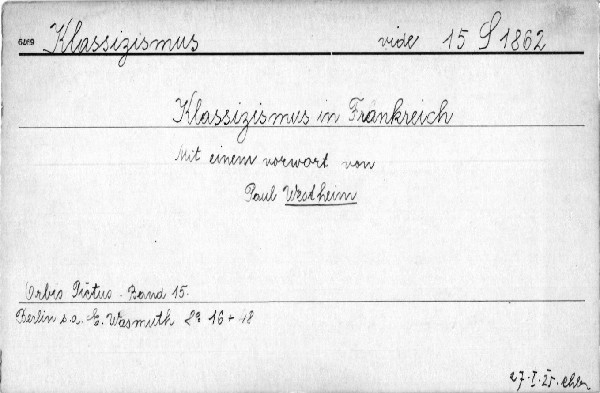 Klassizismus vide 15 S 1862
Klassizismus in Frankreich
Mit einem vorwort von
Paul Westheim
Orbis Pictus - Band 15.
Berlin s.a. E. Wasmuth 8º 16 + 48
27. I. 25.